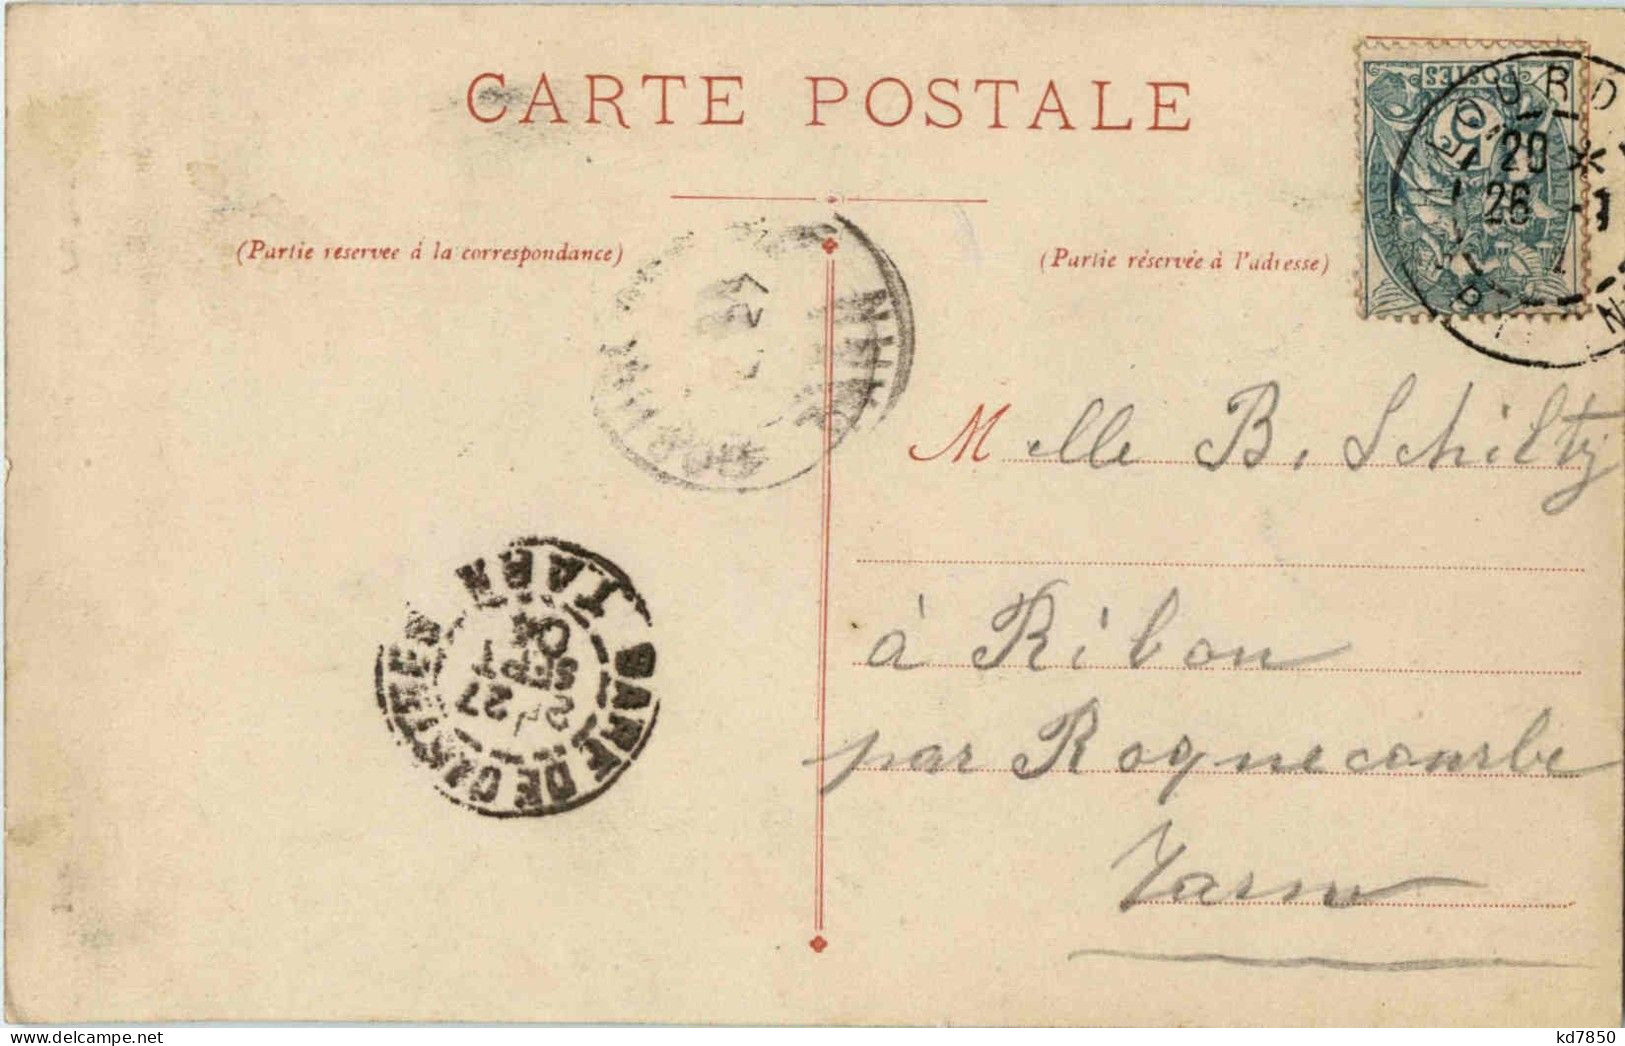 CARTE POSTALE
(Partie réservée à la correspondance)
(Partie réservée à l'adresse)
POSTES
5
20 *
26
27
Melle B. Schiltz
à Ribon
par Roquecourbe
Tarn
GARE DE CASTRES
TARN
27
SEPT
04
kd7850